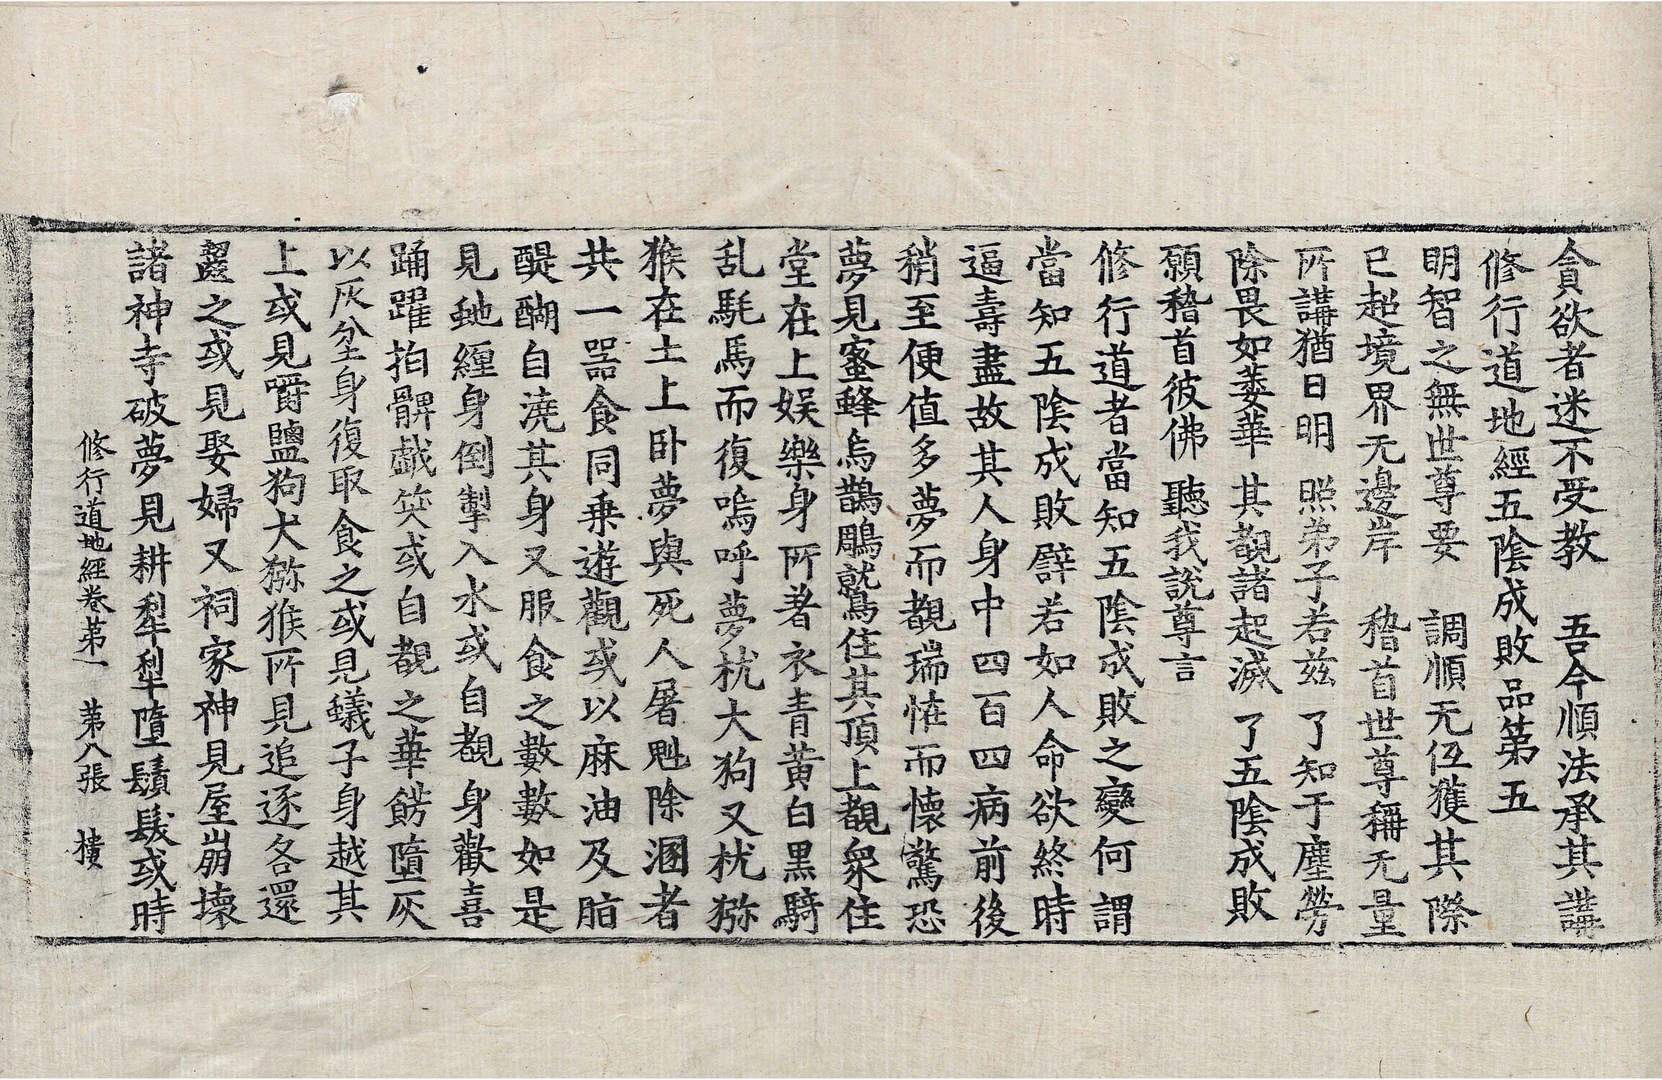 貪欲者迷不受教　吾今順法承其講
修行道地經五陰成敗品第五
明智之無世尊要　調順无伍獲其際
已超境界无邊岸　稽首世尊稱无量
所講猶日明　照弟子若兹　了知于塵勞
除畏如萎華　其覩諸起滅　了五陰成敗
願稽首彼佛　聽我說尊言
修行道者當知五陰成敗之變何謂
當知五陰成敗譬若如人命欲終時
逼壽盡故其人身中四百四病前後
稍至便值多夢而覩瑞恠而懷驚恐
夢見蜜蜂烏鵲鵰鷲住其頂上覩衆住
堂在上娛樂身所著衣青黃白黑騎
乱駞馬而復鳴呼夢枕大狗又枕獼
猴在土上卧夢與死人屠魁除溷者
共一器食同乗遊觀或以麻油及脂
醍醐自澆其身又服食之數數如是
見虵纏身倒掣入水或自覩身歡喜
踊躍拍髀戲笑或自覩之華餝墮灰
以灰坌身復取食之或見蟻子身越其
上或見嚼鹽狗犬獼猴所見追逐各還
齧之或見娶婦又祠家神見屋崩壞
諸神寺破夢見耕犂犂墮鬚髮或時
修行道地經卷第一　第八張　㯹